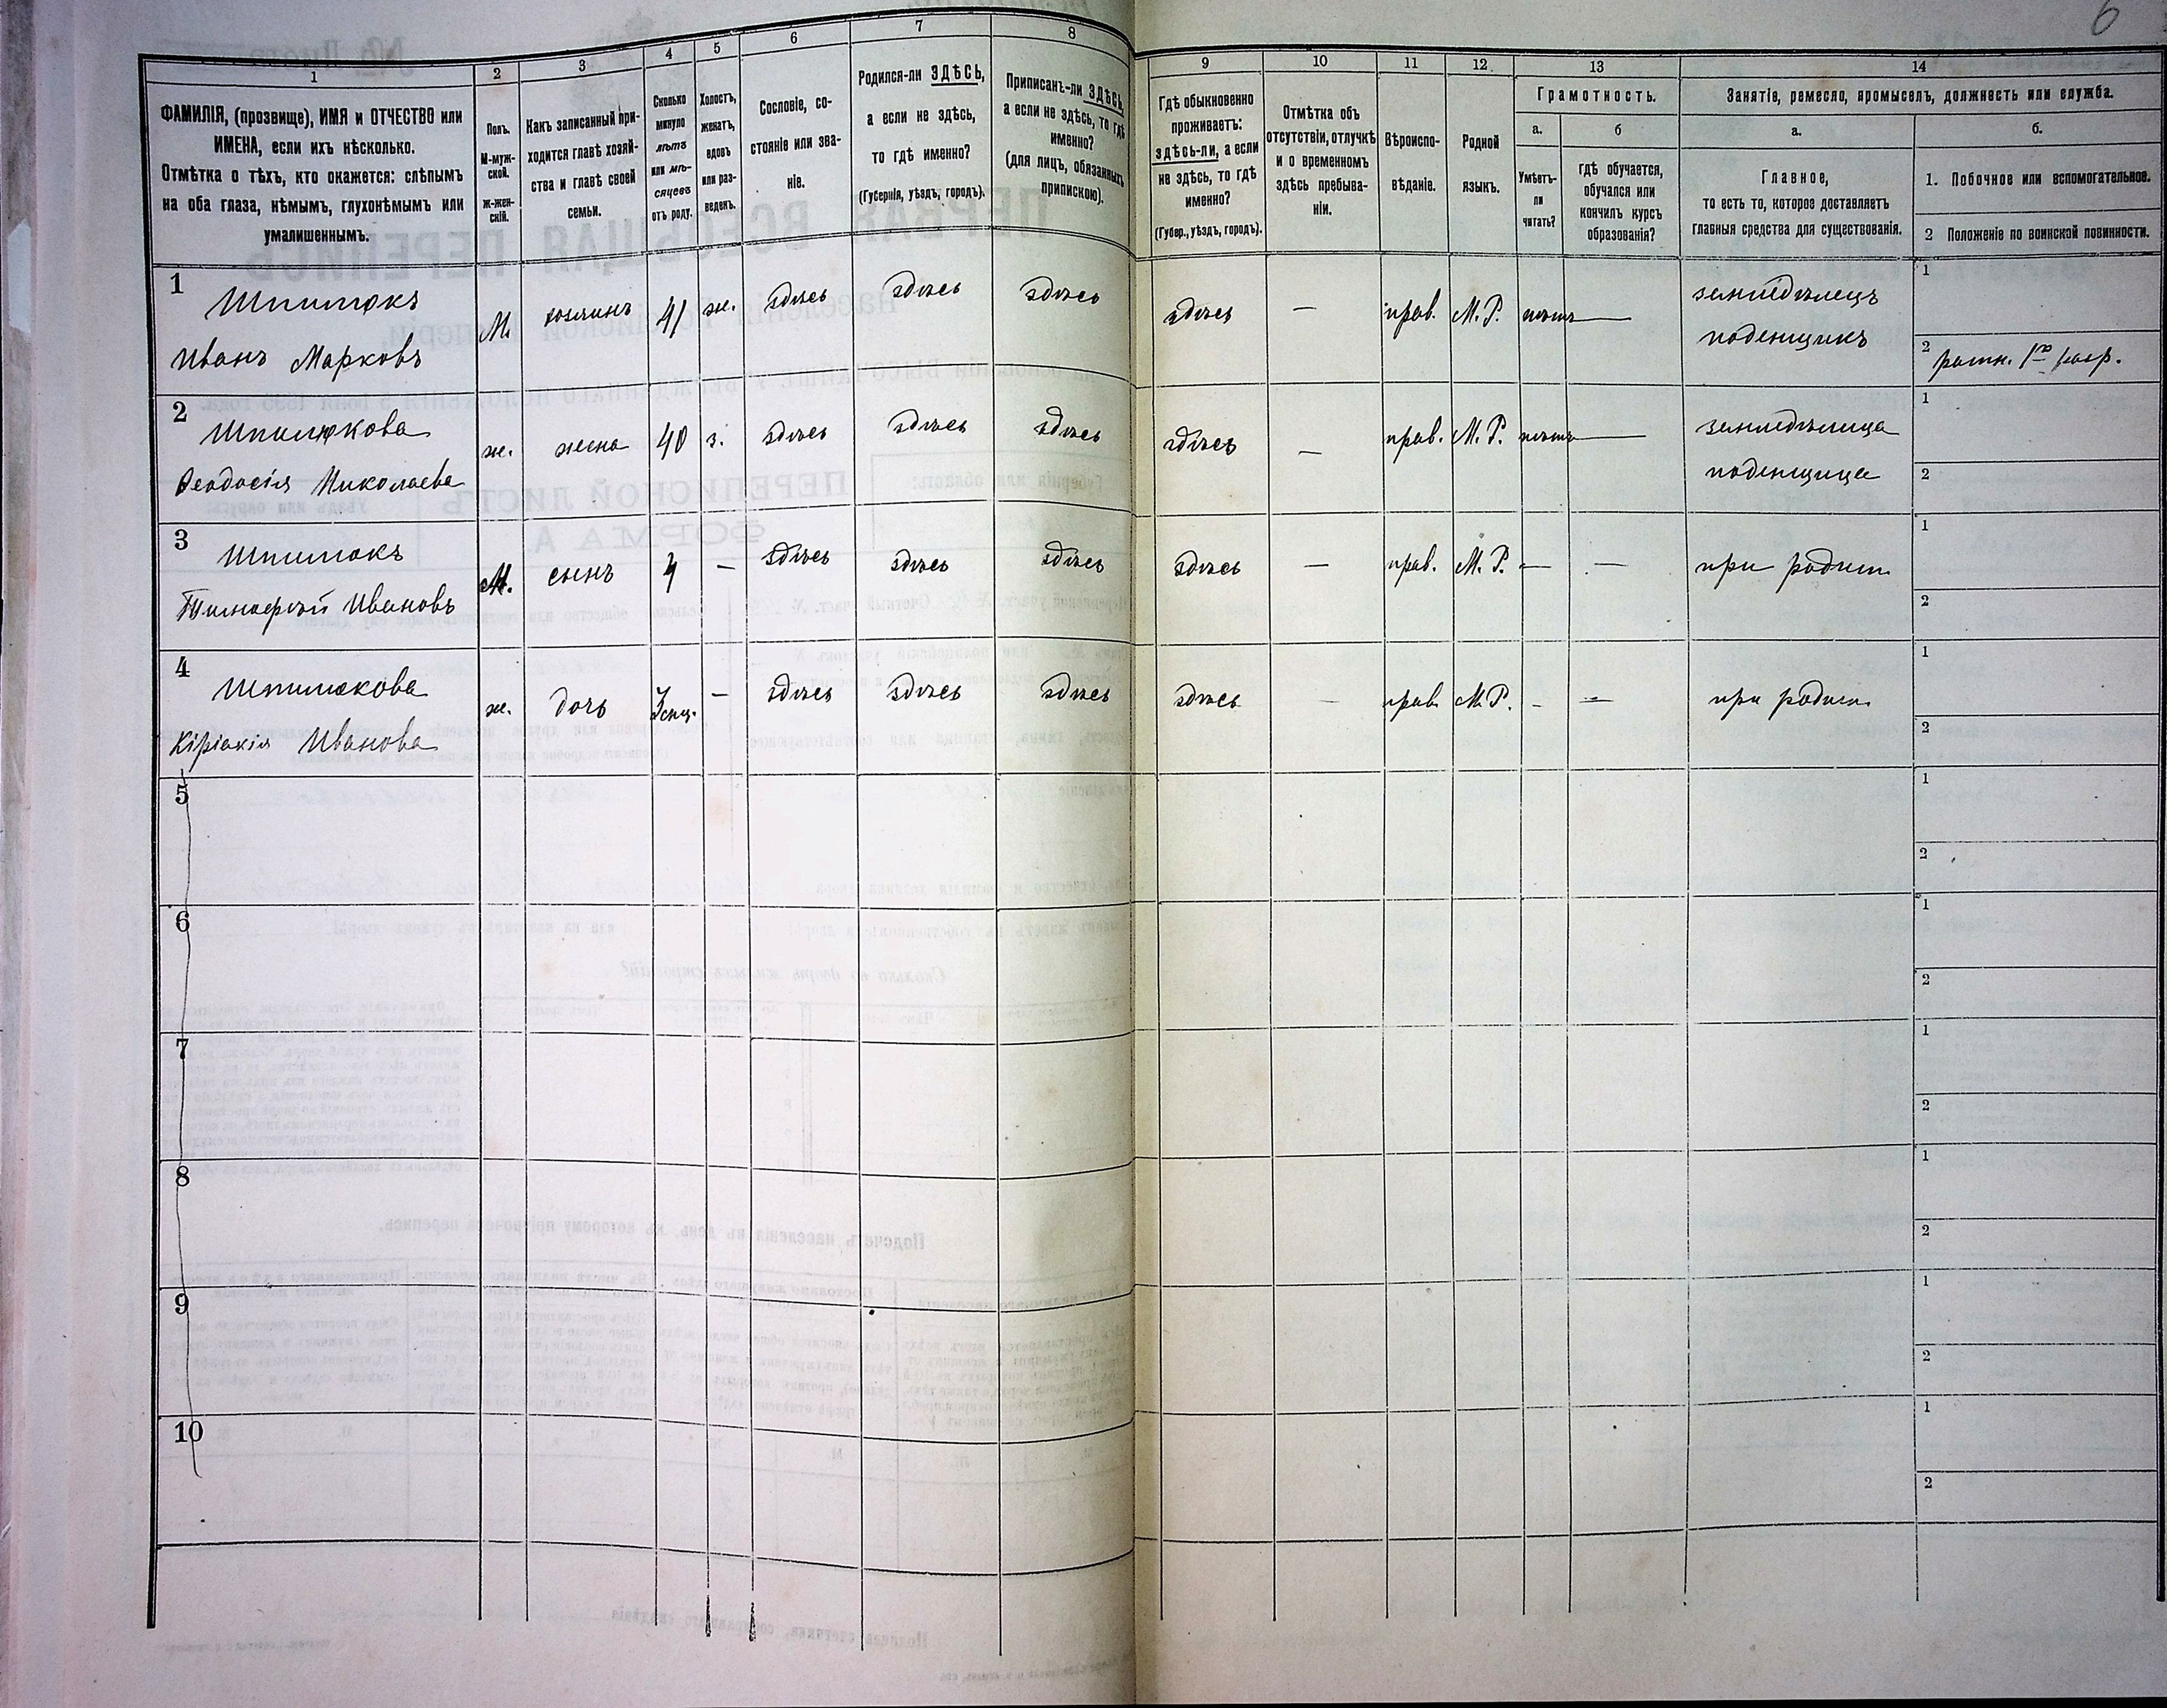 6
1
2
3
4
5
6
7
8
9
10
11
12
13
14
ФАМИЛІЯ, (прозвище), ИМЯ и ОТЧЕСТВО или
ИМЕНА, если ихъ нѣсколько.
Отмѣтка о тѣхъ, кто окажется: слѣпымъ
на оба глаза, нѣмымъ, глухонѣмымъ или
умалишеннымъ.
Полъ.
М-муж-
ской.
Ж-жен-
скій.
Какъ записанный при-
ходится главѣ хозяй-
ства и главѣ своей
семьи.
Сколько
минуло
лѣтъ
или мѣ-
сяцевъ
отъ роду.
Холостъ,
женатъ,
вдовъ
или раз-
веденъ.
Сословіе, со-
стояніе или зва-
ніе.
Родился-ли ЗДѢСЬ,
а если не здѣсь,
то гдѣ именно?
(Губернія, уѣздъ, городъ).
Приписанъ-ли ЗДѢСЬ,
а если не здѣсь, то гдѣ
именно?
(для лицъ, обязанныхъ
припискою).
Гдѣ обыкновенно
проживаетъ:
здѣсь-ли, а если
не здѣсь, то гдѣ
именно?
(Губер., уѣздъ, городъ).
Отмѣтка объ
отсутствіи, отлучкѣ
и о временномъ
здѣсь пребыва-
ніи.
Вѣроиспо-
вѣданіе.
Родной
языкъ.
Грамотность.
а.
б
Умѣетъ-
ли
читать?
гдѣ обучается,
обучался или
кончилъ курсъ
образованія?
Занятіе, ремесло, промыселъ, должность или служба.
а.
б.
Главное,
то есть то, которое доставляетъ
главныя средства для существованія.
1. Побочное или вспомогательное.
2 Положеніе по воинской повинности.
1
Шпилюкъ
Иванъ Марковъ
М. хозяинъ 41 ж. здѣсь здѣсь здѣсь здѣсь — прав. М. Р. нѣтъ —
земледѣлецъ
поденщикъ
1
2 ратн. 1го разр.
2
Шпилюкова
Ѳеодосія Николаева
ж. жена 40 з. здѣсь здѣсь здѣсь здѣсь — прав. М. Р. нѣтъ —
земледѣлица
поденщица
1
2
3
Шпилюкъ
Тимофѣй Ивановъ
М. сынъ 4 — здѣсь здѣсь здѣсь здѣсь — прав. М. Р. — —
при родит.
1
2
4
Шпилюкова
Кіріакія Иванова
ж. дочь — здѣсь здѣсь здѣсь здѣсь — прав. М. Р. - —
при родит.
1
2
5
1
2
6
1
2
7
1
2
8
1
2
9
1
2
10
1
2